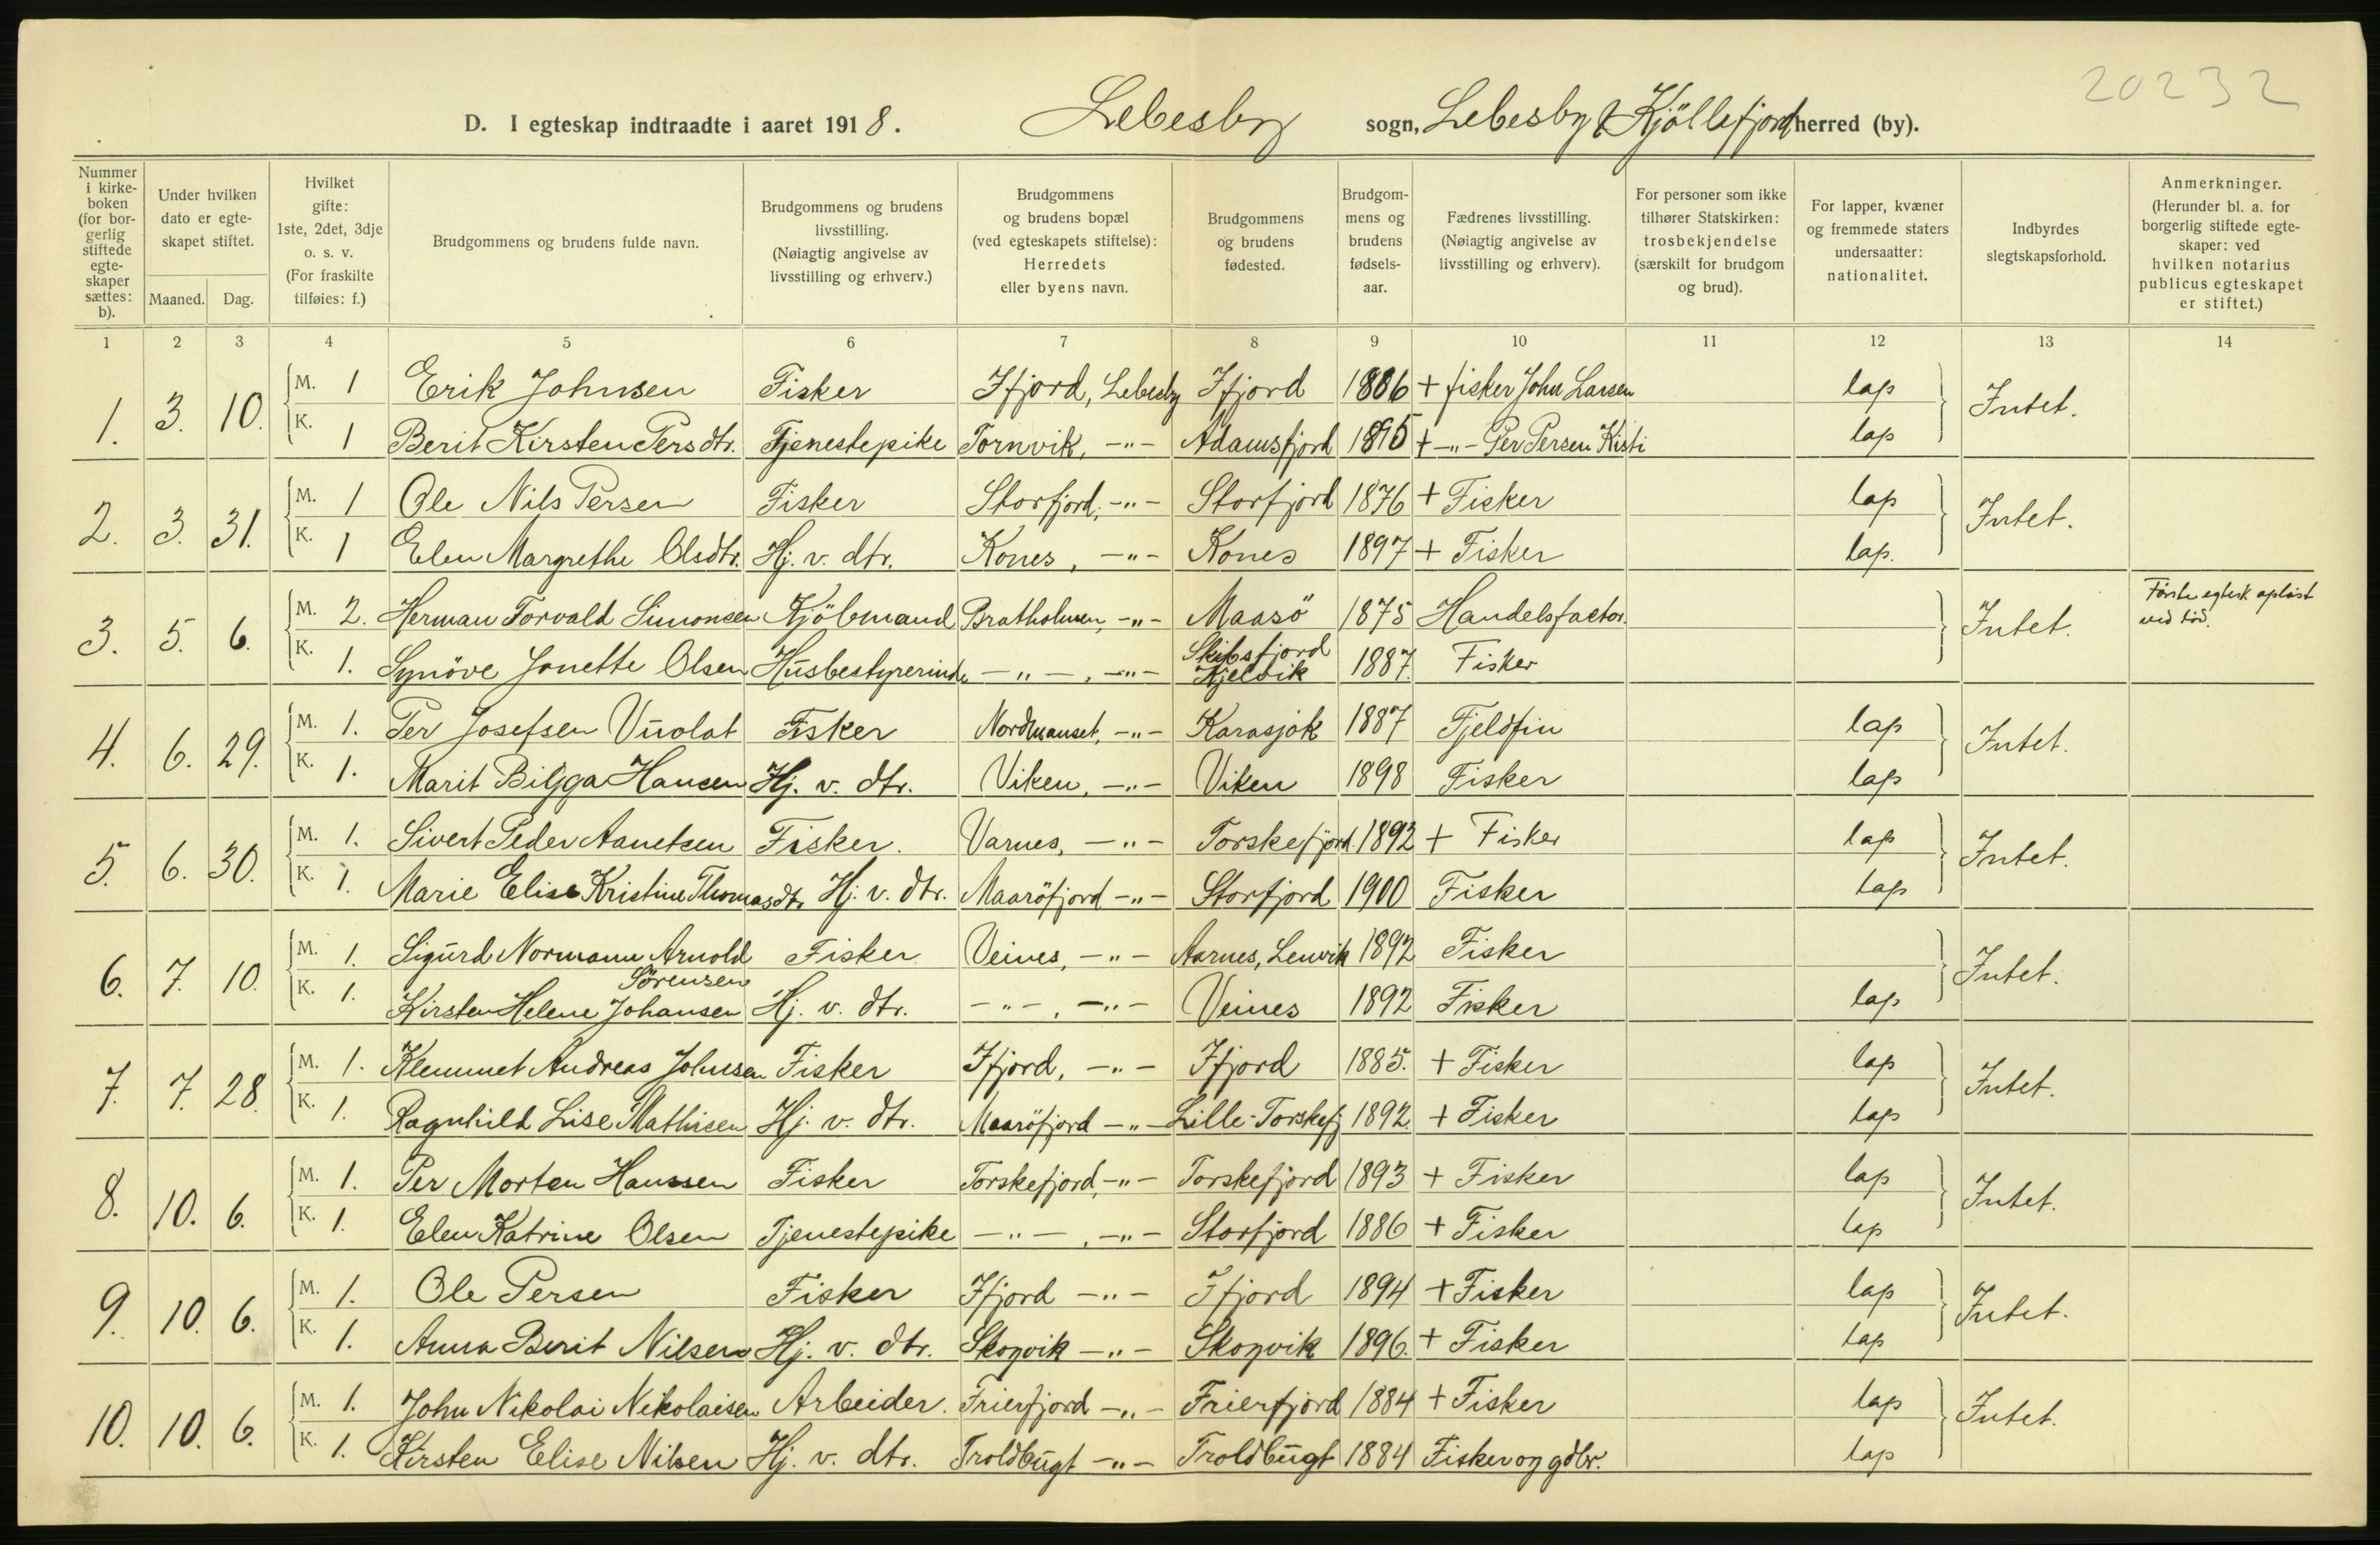 20232
D. I egteskap indtraadte i aaret 1918. Lebesby sogn, Lebesby & Kjöllefjord herred (by).
Nummer i kirkeboken (for borgerlig stiftede egteskaper sættes: b).
Under hvilken dato er egteskapet stiftet.
Maaned. Dag.
Hvilket gifte: 1ste, 2det, 3dje o. s. v. (For fraskilte tilføies: f.)
Brudgommens og brudens fulde navn.
Brudgommens og brudens livsstilling. (Nøiagtig angivelse av livsstilling og erhverv.)
Brudgommens og brudens bopæl (ved egteskapets stiftelse): Herredets eller byens navn.
Brudgommens og brudens fødested.
Brudgommens og brudens fødselsaar.
Fædrenes livsstilling. (Nøiagtig angivelse av livsstilling og erhverv).
For personer som ikke tilhører Statskirken: trosbekjendelse (særskilt for brudgom og brud).
For lapper, kvæner og fremmede staters undersaatter: nationalitet.
Indbyrdes slegtskapsforhold.
Anmerkninger. (Herunder bl. a. for borgerlig stiftede egteskaper: ved hvilken notarius publicus egteskapet er stiftet.)
1 2 3 4 5 6 7 8 9 10 11 12 13 14
1. 3. 10. M. 1 Erik Johnsen Fisker Ifjord, Lebesby Ifjord 1886 + fisker John Larsen lap Intet.
K. 1 Berit Kirsten Persdtr. Tjenestepike Tornvik, -"- Adamsfjord 1895 + -"- Per Persen Kisti lap
2. 3. 31. M. 1 Ole Nils Persen Fisker Storfjord, -"- Storfjord 1876 + Fisker lap Intet.
K. 1 Elen Margrethe Olsdtr. Hj. v. dtr. Kones, -"- Kones 1897 + Fisker lap.
3. 5. 6. M. 2. Herman Torvald Simonsen Kjöbmand Bratholmen, -"- Maasö 1875 Handelsfactor. Intet. Første egtesk opløst ved död.
K. 1. Synöve Jonette Olsen Husbestyrerinde -"-, -"- Skibsfjord Kjelvik 1887. Fisker
4. 6. 29. M. 1. Per Josefsen Vuolat Fisker Nordmanset, -"- Karasjok 1887 Fjeldfin lap Intet.
K. 1. Marit Bigga Hansen Hj. v. dtr. Viken, -"- Viken 1898 Fisker lap
5. 6. 30. M. 1. Sivert Peder Asnetsen Fisker. Varnes, -"- Torskefjord. 1892 + Fisker lap Intet.
K. 1. Marie Elise Kristine Thomasdtr Hj. v. dtr. Maaröfjord -"- Storfjord 1900 Fisker lap
6. 7. 10. M. 1. Sigurd Normann Arnold Sörensen Fisker Veines, -"- Aarnes, Lenvik 1892 Fisker Intet.
K. 1. Kirsten Helene Johansen Hj. v. dtr. -"-, -"- Veines 1892 Fisker lap
7. 7. 28. M. 1. Klemmet Andreas Johnsen Fisker Ifjord, -"- Ifjord 1885. + Fisker lap Intet.
K. 1. Ragnhild Lise Mathisen Hj. v. dtr. Maaröfjord -"- Lille-Torskefj 1892. + Fisker lap
8. 10. 6. M. 1. Per Morten Hanssen Fisker Torskefjord, -"- Torskefjord 1893 + Fisker lap Intet.
K. 1. Elen Katrine Olsen Tjenestepike -"-, -"- Storfjord 1886 + Fisker lap
9. 10. 6. M. 1. Ole Persen Fisker Ifjord -"- Ifjord 1894 + Fisker lap Intet.
K. 1. Anna Berit Nilsen Hj. v. dtr. Skogvik -"- Skogvik 1896. + Fisker lap
10. 10. 6. M. 1. John Nikolai Nikolaisen Arbeider. Frierfjord -"- Frierfjord 1884 + Fisker lap Intet.
K. 1. Kirsten Elise Nilsen Hj. v. dtr. Troldbugt -"- Troldbugt 1884 Fisker og gdbr. lap